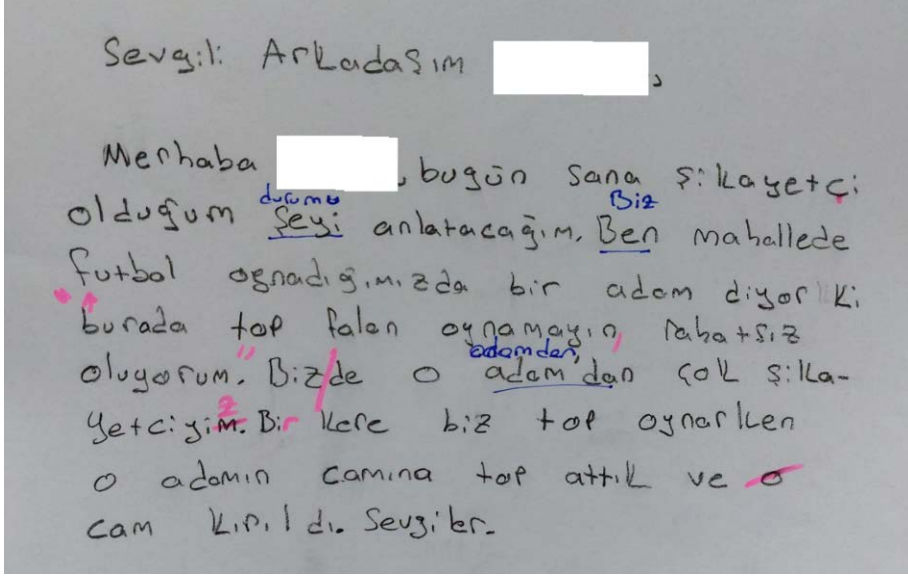 Sevgili Arkadaşım ,
Merhaba , bugün sana şikayetçi
durumu Biz
olduğum şeyi anlatacağım. Ben mahallede
futbol oynadığımızda bir adam diyor ki
" burada top falan oynamayın, rahatsız
adamdan,
oluyorum." Biz/de o adam'dan çok şika-
z
yetçiyim. Bir kere biz top oynarken
o adamın camına top attık ve o
cam kırıldı. Sevgiler.